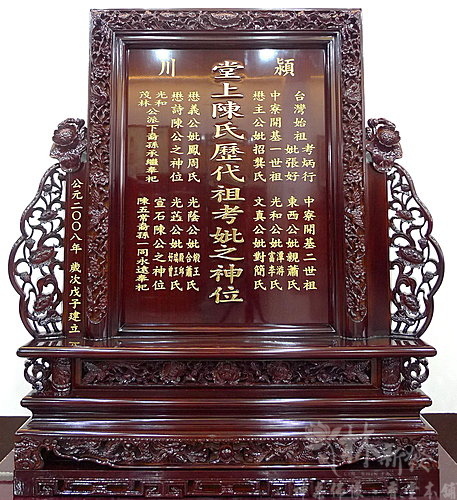 潁川
台灣始祖考炳行
妣張好
中寮開基一世祖
懋主公妣招龔氏
中寮開基二世祖
東西公妣親蕭氏
光和公妣津游富李氏
文真公妣對簡氏
堂上陳氏歷代祖考妣之神位
懋義公妣鳳周氏
懋詩陳公之神位
光和
茂林公派下裔孫承繼奉祀
光蔭公妣王蕭氏
公妣王氏
宣石陳公之神位
陳五常裔孫一同永遠奉祀
公元二〇〇八年 歲次戊子建立